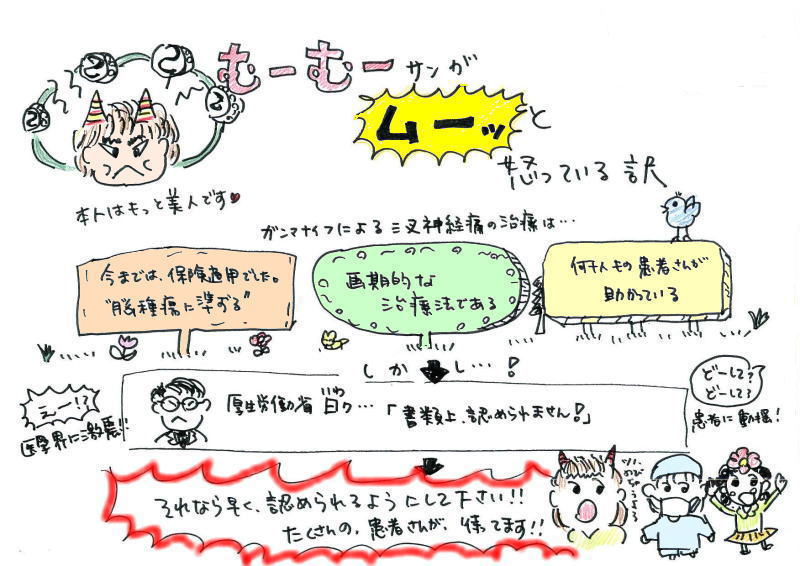 むーむーサンが
ムーッと
怒っている訳
本人はもっと美人です
ガンマナイフによる三叉神経痛の治療は…
今までは、保険適用でした。
"脳腫瘍に準ずる"
画期的な
治療法である
何千人もの患者さんが
助かっている
しかし…!
えー!?
医学界に激震!!
厚生労働省曰ク…「書類上、認められません!」
いわ
どーして?
どーして?
患者に動揺!
それなら早く、認められるようにして下さい!!
たくさんの、患者さんが、待ってます!!